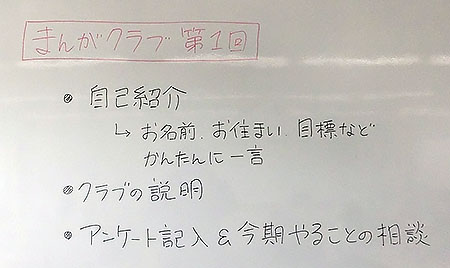 まんがクラブ 第1回
• 自己紹介
↳ お名前、お住まい、目標など
かんたんに一言
• クラブの説明
• アンケート記入 & 今期やることの相談